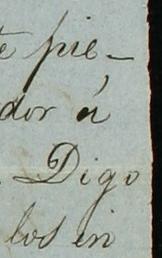 te pie-
dor á
Digo
los in